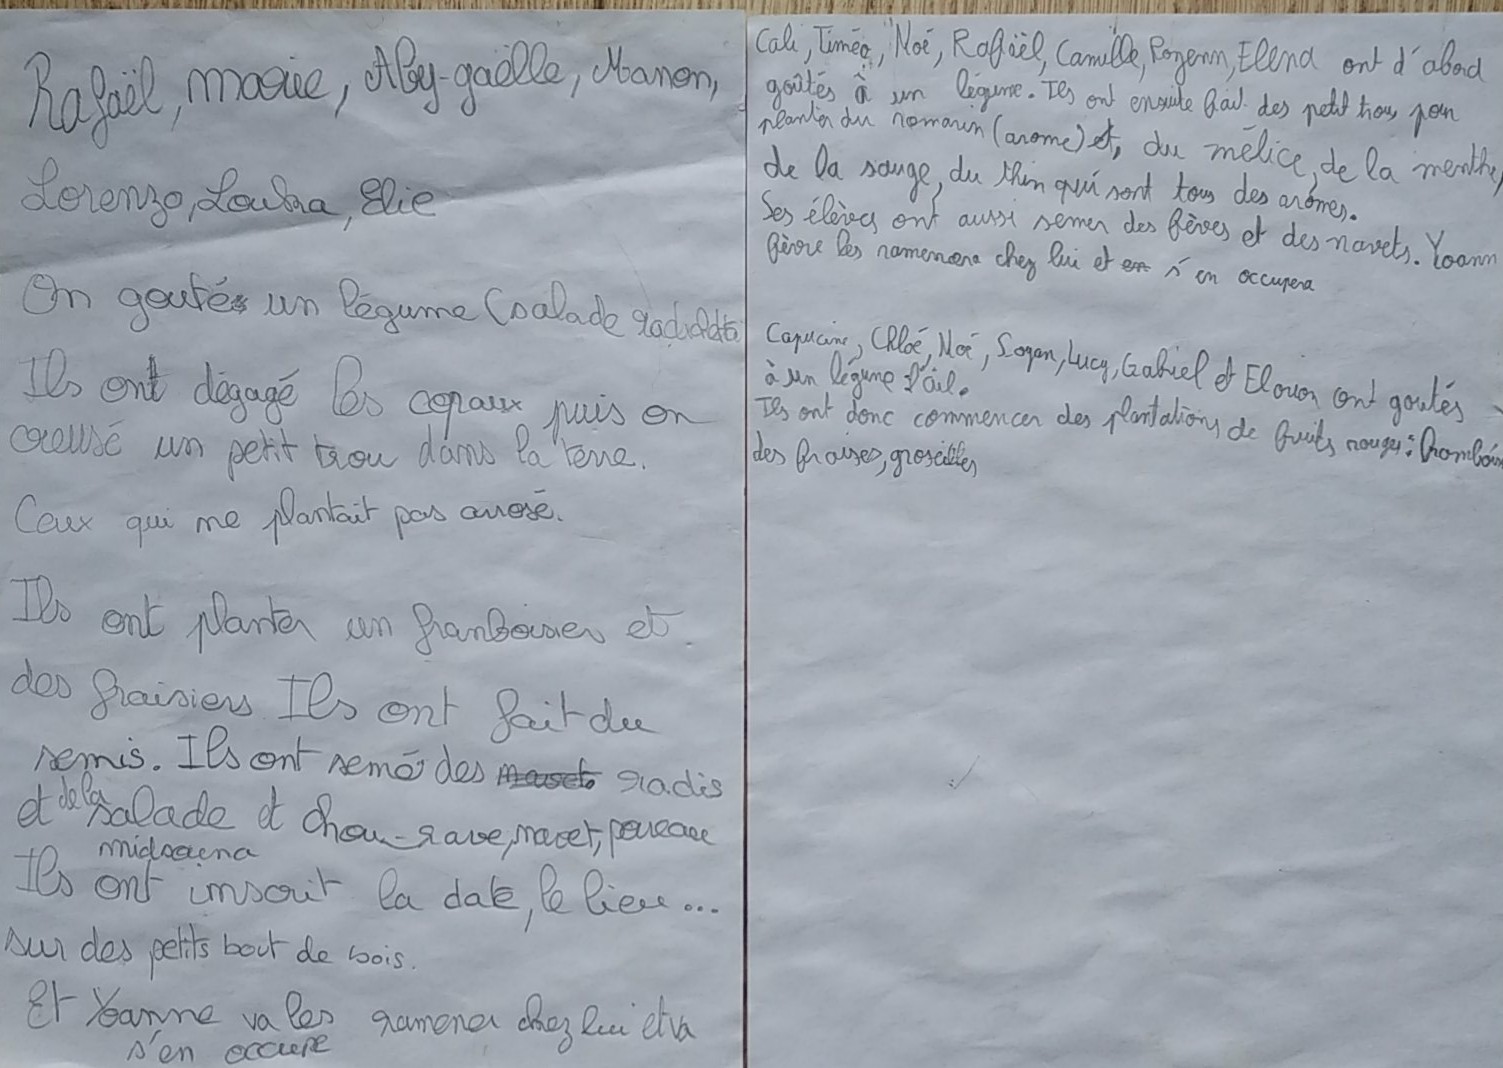 Rafaël, marie, Aby-gaëlle, Manon,
Lorenzo, Louna, Elie
On goutés un légume (salade
Ils ont dégagé les copaux puis on
creusé un petit trou dans la terre.
Ceux qui me plantait pas arrosé.
Ils ont planter un franboisier et
des fraisiers Ils ont fait du
semis. Ils ont semé des radis
et de la salade et chou-rave, navet, poireau
Ils ont inscrit la date, le lieu...
sur des petits bout de bois.
Et Yoanne va les ramener chez lui et va
s'en occupe
Cali, Timéo, Noé, Rafaël, Camille, Rozenn, Elena ont d'abord
goûtés à un légume. Ils ont ensuite fait des petit trous pour
planter du romarin (arome) et, du mélice, de la menthe,
de la sauge, du thin qui sont tous des arômes.
Ses élèves ont aussi semer des fèves et des navets. Yoann
fièvre les ramenera chez lui et s'en occupera
Capucine, Chloé, Noé, Sogan, Lucy, Gabriel et Elouan ont goutés
à un légume l'ail.
Ils ont donc commencer des plantations de fruits rouges:
des fraises, groseilles